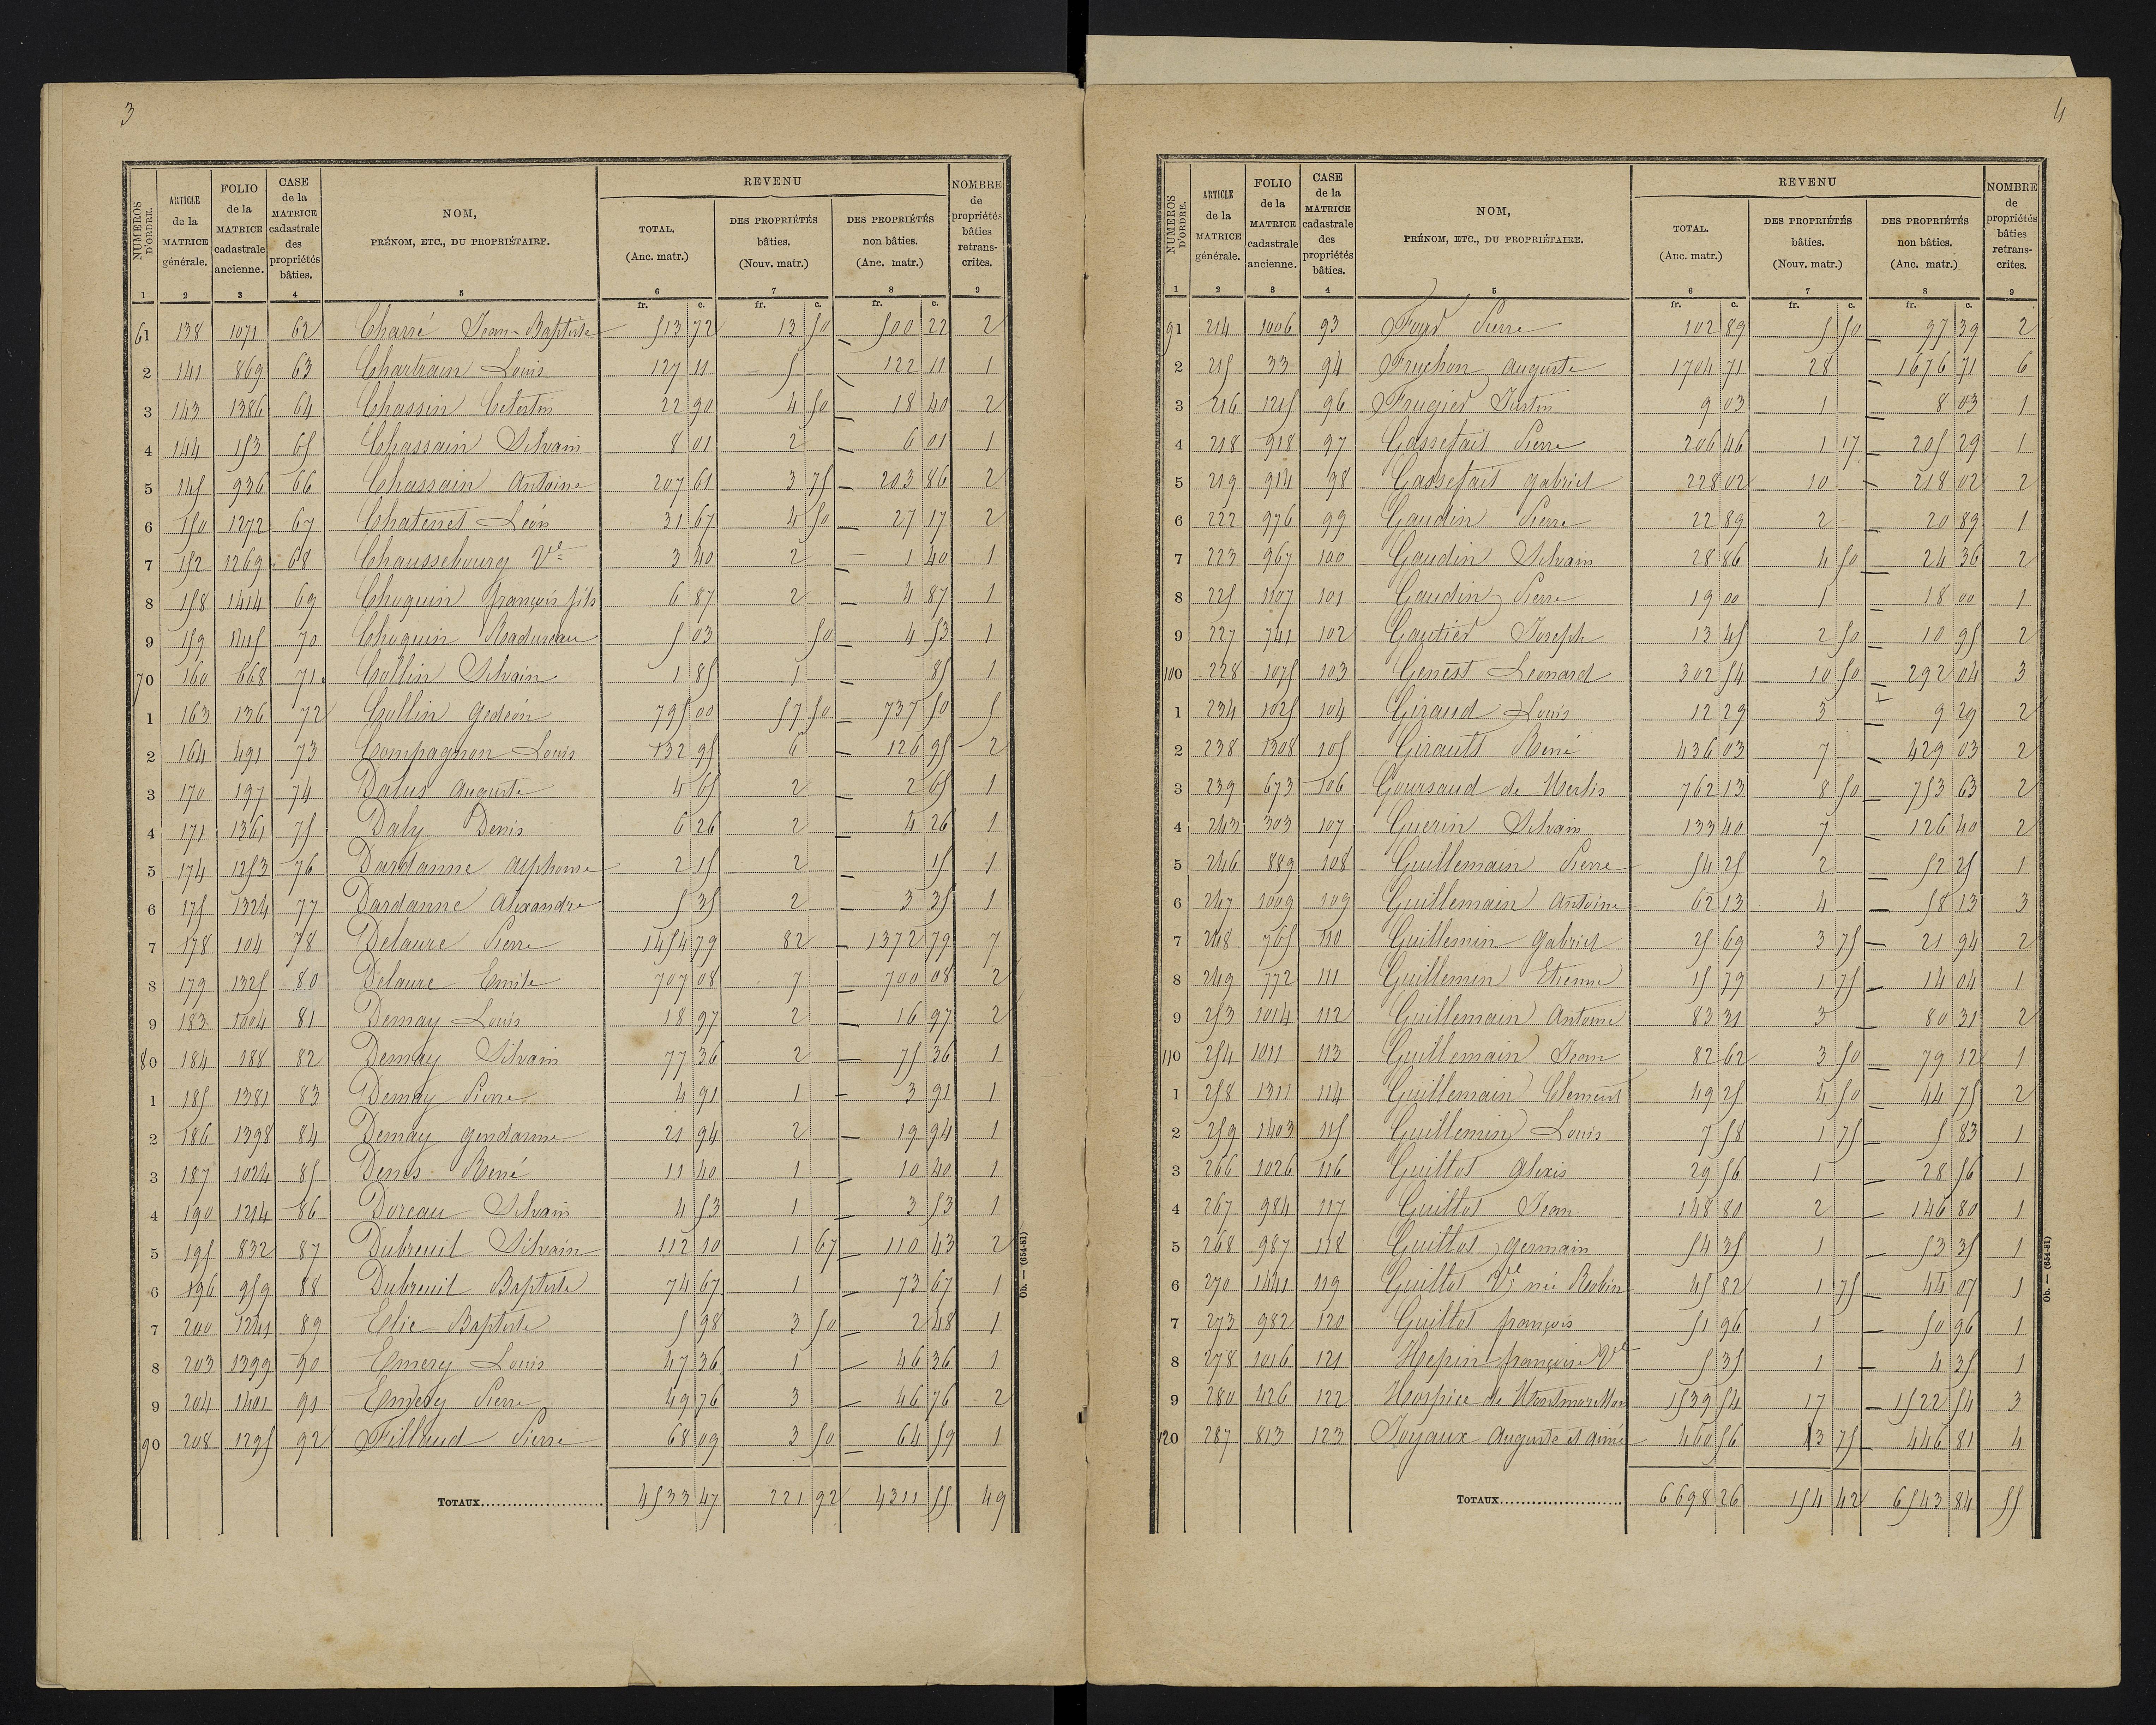 3
NUMÉROS D'ORDRE.
ARTICLE de la MATRICE générale.
FOLIO de la MATRICE cadastrale ancienne.
CASE de la MATRICE cadastrale des propriétés bâties.
NOM, PRÉNOM, ETC., DU PROPRIÉTAIRE.
REVENU
TOTAL. (Anc. matr.)
DES PROPRIÉTÉS bâties. (Nouv. matr.)
DES PROPRIÉTÉS non bâties. (Anc. matr.)
NOMBRE de propriétés bâties retrans-crites.
1 2 3 4 5 6 7 8 9
fr. c. fr. c. fr. c.
61 138 1071 62 Charré Jean-Baptiste 513 72 13 50 500 22 2
2 141 869 63 Chartrain Louis 127 11 5 122 11 1
3 143 1386 64 Chassin Célestin 22 90 4 50 18 40 2
4 144 153 65 Chassain Silvain 8 01 2 6 01 1
5 145 936 66 Chassain Antoine 207 61 3 75 203 86 2
6 150 1272 67 Chatenet Léon 31 67 4 50 27 17 2
7 152 1269 68 Chaussebourg Ve 3 40 2 1 40 1
8 158 1414 69 Choquin françois fils 6 87 2 4 87 1
9 159 1415 70 Choquin Radureau 5 03 50 4 53 1
70 160 668 71 Collin Silvain 1 85 1 85 1
1 163 136 72 Collin Gedéon 795 00 57 50 737 50 5
2 164 491 73 Compagnon Louis 132 95 6 126 95 2
3 170 197 74 Dalus Auguste 4 65 2 2 65 1
4 171 1361 75 Daly Denis 6 26 2 4 26 1
5 174 1253 76 Dardanne Alphonse 2 15 2 15 1
6 175 1324 77 Dardanne Alexandre 5 35 2 3 35 1
7 178 104 78 Delaure Pierre 1454 79 82 1372 79 7
8 179 1325 80 Delaure Emile 707 08 7 700 08 2
9 183 1004 81 Demay Louis 18 97 2 16 97 2
80 184 188 82 Demay Silvain 77 36 2 75 36 1
1 185 1381 83 Demay Pierre 4 91 1 3 91 1
2 186 1398 84 Demay gendarme 21 94 2 19 94 1
3 187 1024 85 Denis René 11 40 1 10 40 1
4 190 1214 86 Doreau Silvain 4 53 1 3 53 1
5 195 832 87 Dubreuil Silvain 112 10 1 67 110 43 2
6 196 959 88 Dubreuil Baptiste 74 67 1 73 67 1
7 200 1241 89 Elie Baptiste 5 98 3 50 2 48 1
8 203 1399 90 Emery Louis 47 36 1 46 36 1
9 204 1401 91 Emery Pierre 49 76 3 46 76 2
90 208 1295 92 Fillaud Pierre 68 09 3 50 64 59 1
TOTAUX 4533 47 221 92 4311 55 49
Ob. — (654-81)
4
NUMÉROS D'ORDRE.
ARTICLE de la MATRICE générale.
FOLIO de la MATRICE cadastrale ancienne.
CASE de la MATRICE cadastrale des propriétés bâties.
NOM, PRÉNOM, ETC., DU PROPRIÉTAIRE.
REVENU
TOTAL. (Anc. matr.)
DES PROPRIÉTÉS bâties. (Nouv. matr.)
DES PROPRIÉTÉS non bâties. (Anc. matr.)
NOMBRE de propriétés bâties retrans-crites.
1 2 3 4 5 6 7 8 9
fr. c. fr. c. fr. c.
91 214 1006 93 Pierre 102 89 5 50 97 39 2
2 215 33 94 Fruchon Auguste 1704 71 28 1676 71 6
3 216 1215 96 Frugier Justin 9 03 1 8 03 1
4 218 918 97 Gassefait Pierre 206 46 1 17 205 29 1
5 219 914 98 Gassefait gabriel 228 02 10 218 02 2
6 222 976 99 Gaudin Pierre 22 89 2 20 89 1
7 223 967 100 Gaudin Silvain 28 86 4 50 24 36 2
8 225 1107 101 Gaudin Pierre 19 00 1 18 00 1
9 227 741 102 Gautier Joseph 13 45 2 50 10 95 2
100 228 1075 103 Genest Leonard 302 54 10 50 292 04 3
1 234 1025 104 Giraud Louis 12 29 3 9 29 2
2 238 1308 105 Girault René 436 03 7 429 03 2
3 239 673 106 Goursaud de Merlis 762 13 8 50 753 63 2
4 243 303 107 Guerin Silvain 133 40 7 126 40 2
5 246 889 108 Guillemain Pierre 54 25 2 52 25 1
6 247 1009 109 Guillemain Antoine 62 13 4 58 13 3
7 248 765 110 Guillemin Gabriel 25 69 3 75 21 94 2
8 249 772 111 Guillemin Etienne 15 79 1 75 14 04 1
9 253 1014 112 Guillemain Antoine 83 31 3 80 31 2
110 254 1011 113 Guillemain Jean 82 62 3 50 79 12 1
1 258 1311 114 Guillemain Clement 49 25 4 50 44 75 2
2 259 1403 115 Guillemin Louis 7 58 1 75 5 83 1
3 266 1026 116 Guillot Alexis 29 56 1 28 56 1
4 267 984 117 Guillot Jean 148 80 2 146 80 1
5 268 987 118 Guillot germain 54 35 1 53 35 1
6 270 1441 119 Guillot Ve née Robin 45 82 1 75 44 07 1
7 273 982 120 Guillot françois 51 96 1 50 96 1
8 278 1016 121 Hepin françoise Ve 5 35 1 4 35 1
9 280 426 122 Hospice de Montmorillon 1539 54 17 1522 54 3
120 287 813 123 Joyaux Auguste et aimé 460 56 13 75 446 81 4
TOTAUX 6698 26 154 42 6543 84 55
Ob. — (654-81)